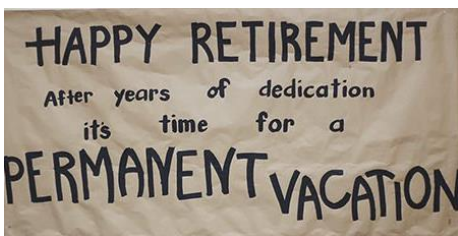 HAPPY RETIREMENT
After years of dedication
it's time for a
PERMANENT VACATION